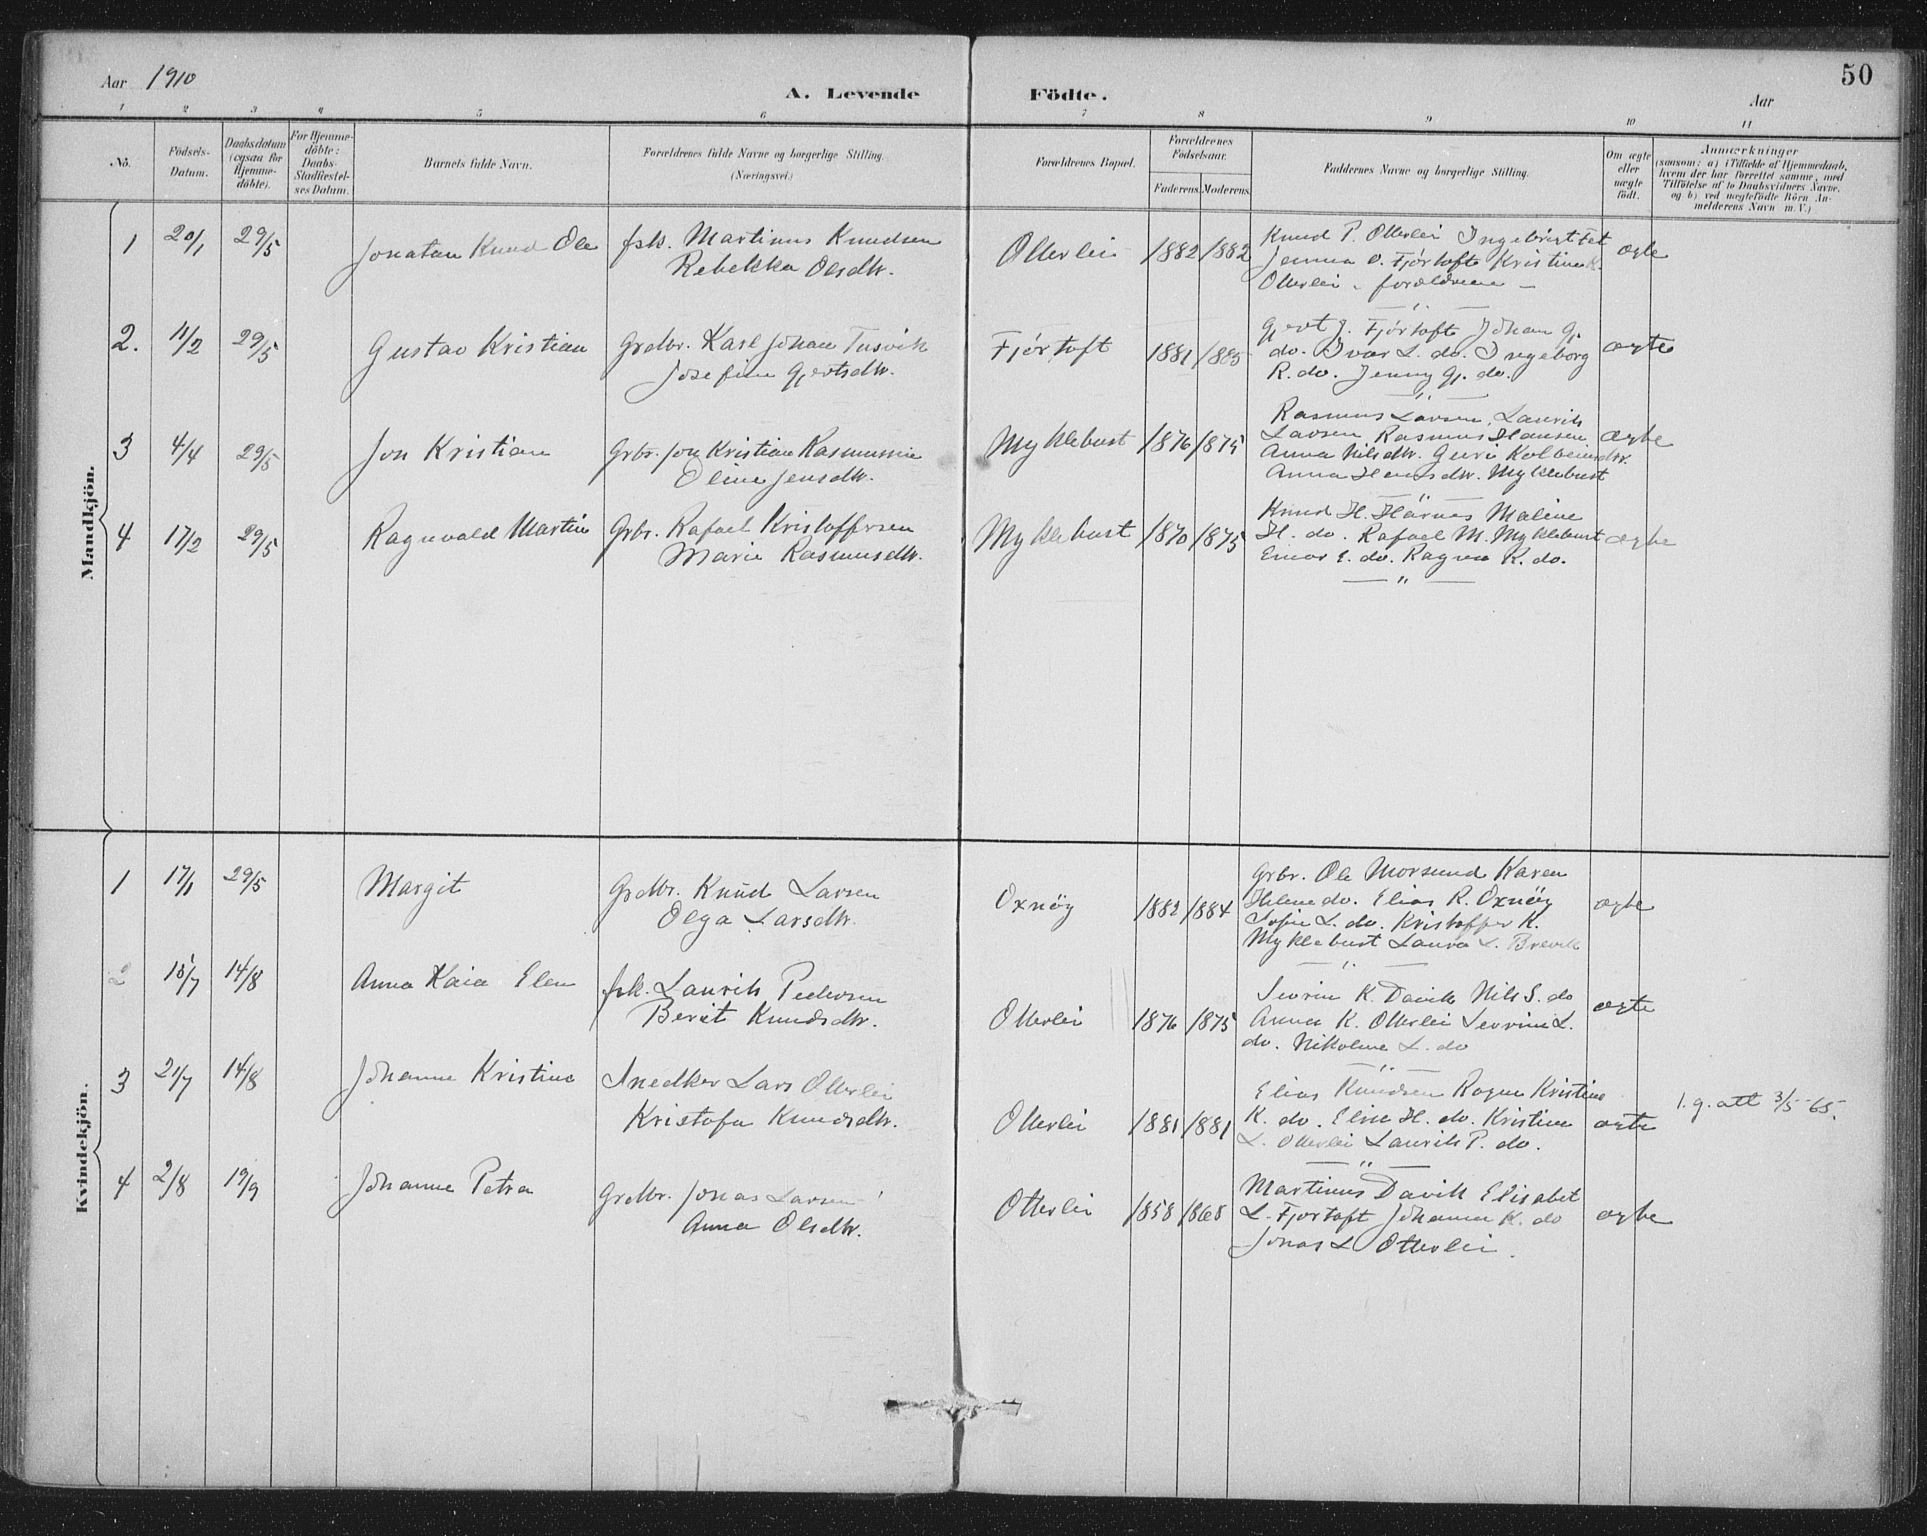 Aar 1910
A. Levende Födte.
50
Aar
1 2 3 4 5 6 7 8 9 10 11
No.
Födsels-
Datum.
Daabsdatum
(ogsaa for
Hjemme-
döbte).
For Hjemme-
döbte:
Daabs-
Stadfæstel-
ses Datum.
Barnets fulde Navn.
Forældrenes fulde Navne og borgerlige Stilling.
(Næringsvei.)
Forældrenes Bopæl.
Forældrenes
Födselsaar.
Faderens. Moderens.
Faddernes Navne og borgerlige Stilling.
Om ægte
eller
uægte
födt.
Anmærkninger
(saasom: a) i Tilfælde af Hjemmedaab,
hvem der har forrettet samme, med
Tilföielse af to Daabsvidners Navne,
og b) ved uægtefödte Börn An-
melderens Navn m. V.)
Mandkjön.
1 20/1 29/5 Jonatan Knud Ole
fsk. Martinus Knudsen
Rebekka Olsdtr.
Otterlei 1882 1882
Knud P. Otterlei Ingebrigt
Jenma O. Fjörtoft Kristine K.
Otterlei - forældrene -
ægte
2. 11/2 29/5 Gustav Kristian
Grdbr. Karl Johan Tusvik
Josefine Gjertsdtr.
Fjörtoft 1881 1885
Gjert J. Fjörtoft Johan Gj.
do. Ivar L. do. Ingeborg
R. do. Jenny Gj. do.
ægte
3 4/4 29/5 Jon Kristian
Grbr. Jon Kristian Rasmussen
Oline Jensdtr.
Myklebust 1876 1875
Rasmus Larsen, Laurits
Larsen Rasmus Hansen
Anna Nilsdtr. Guri Kolbeinsdtr.
Anna Hansdtr. Myklebust
ægte
4 17/2 29/5 Ragnvald Martin
Grbr. Rafael Kristoffersen
Marie Rasmusdtr.
Myklebust 1870 1875
Knud H. Harnes Malene
H. do. Rafael M. Myklebust
Einar E. do. Ragna K. do.
ægte
Kvindekjön.
1 17/1 29/5 Margit
Grdbr. Knud Larsen
Olga Larsdtr.
Oxnöy 1882 1884
Grbr. Ole Morsund Karen
Helene do. Elias R. Oxnöy
Sofie L. do. Kristoffer K.
Myklebust Laura L. Brevik
ægte
2 15/7 14/8 Anna Kaia Elen
fsk. Laurits Pedersen
Berit Knudsdtr.
Otterlei 1876 1875
Sevrin K. Davik Nils S. do
Anna K. Otterlei Sevrine L.
do. Nikoline L. do
ægte
3 21/7 14/8 Johanne Kristine
Snedker Lars Otterlei
Kristofa Knudsdtr.
Otterlei 1881 1881
Elias Knudsen Ragna Kristine
K. do. Elen H. do. Kristine
L. Otterlei Laurits P. do.
ægte
1. g. att 3/5-65.
4 2/8 19/9 Johanne Petra
Grdbr. Jonas Larsen
Anna Olsdtr.
Otterlei 1858 1868
Martinus Davik Elisabet
L. Fjortoft Johanna K. do
Jonas L. Otterlei.
ægte